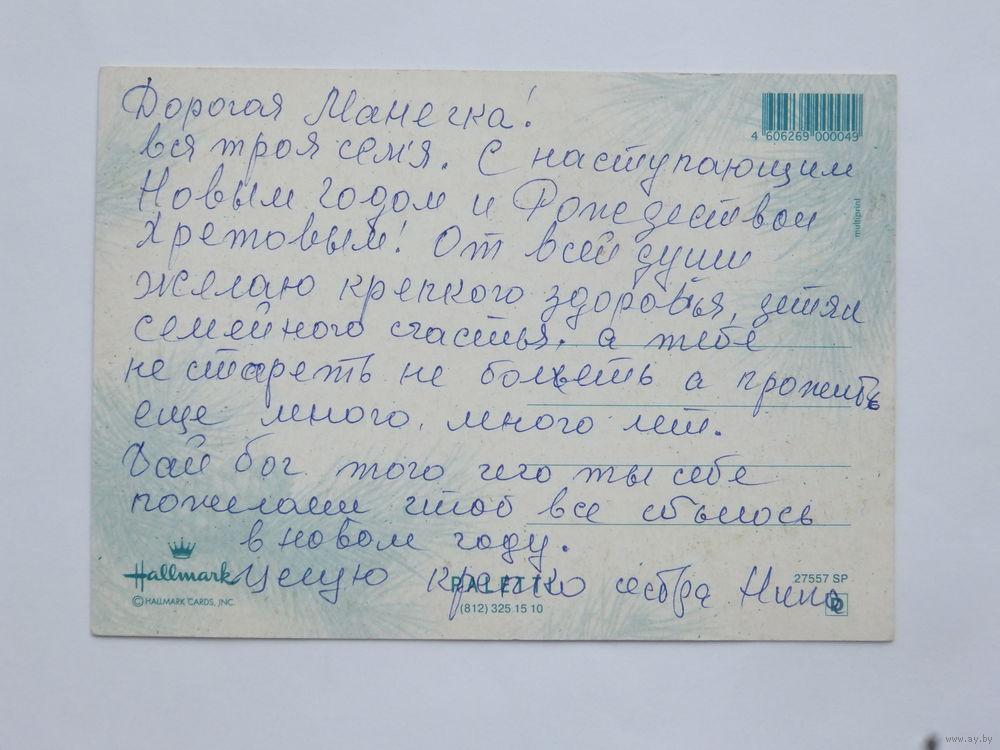 Дорогая Манечка!
4 606269 000049
вся троя сем'я. С наступающим
Новым годом и Рождеством
multiprint
Хретовым! От всей души
желаю крепкого здоровья, детям
семейного счастья. а тебе
не стареть не болеть а прожить
еще много, много лет.
Дай бог того чего ты себе
пожелаеш чтоб все сбылось
в новом году.
Hallmark Целую крепко сестра Нина
PALETTI 27557 SP
© HALLMARK CARDS, INC. (812) 325 15 10
www.ay.by